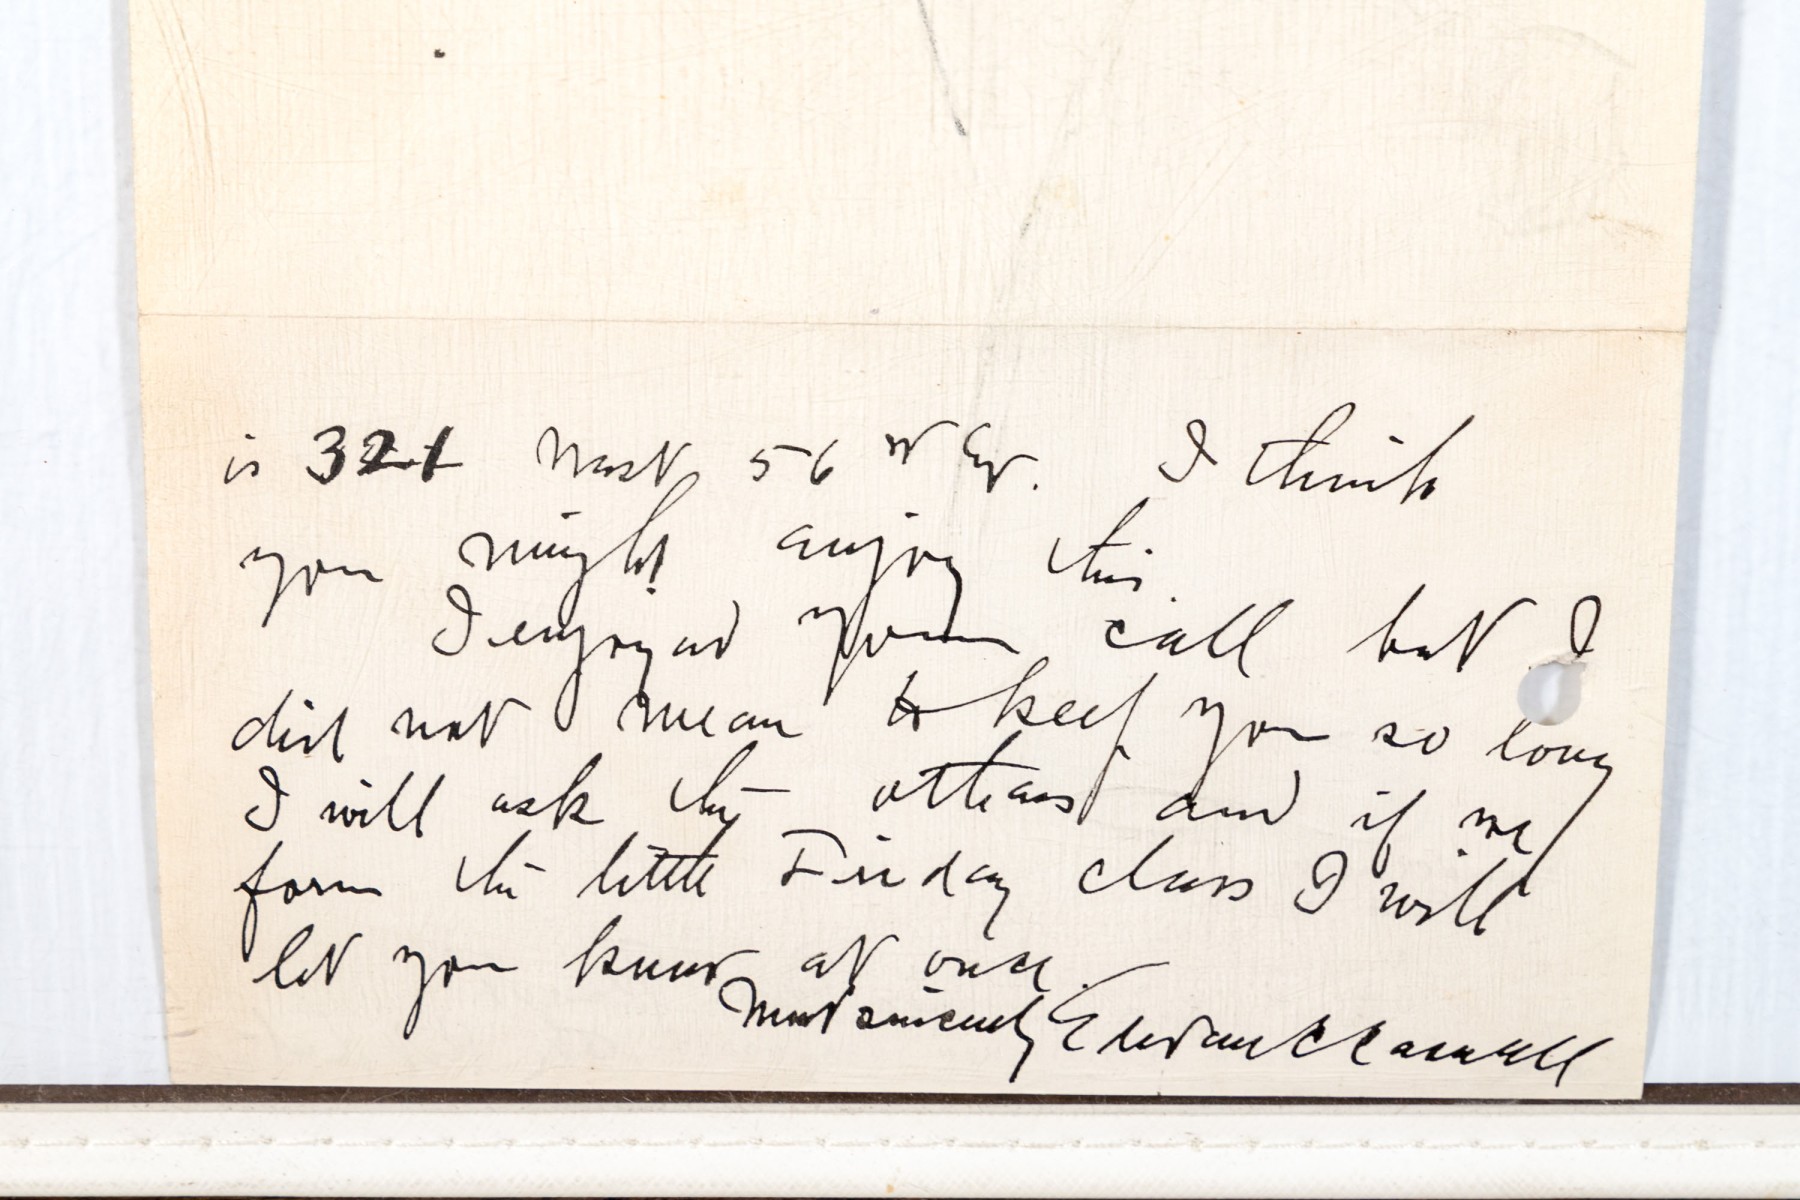 is 321 West 56 St. I think
you might enjoy this.
I enjoyed your call but I
did not mean to keep you so long
I will ask the others and if we
form the little Friday class I will
let you know at once.
Most sincerely